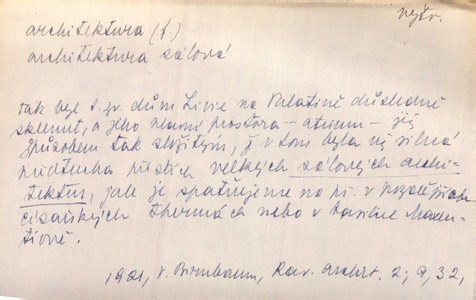 výtv.
architektura (f.)
architektura sálová
Tak byl t. zv. dům Livie na Palatině důsledně
sklenut, a jeho hlavní prostora – atrium –
způsobem tak složitým, ž v tom byla už silná
předtucha příštích velkých sálových archi-
tektur, jak je spatřujeme na př. v pozdějších
císařských thermách nebo v basilice Maxen-
tiově.
1921, V. Birnbaum, Rav. archit. 2; 9, 32,